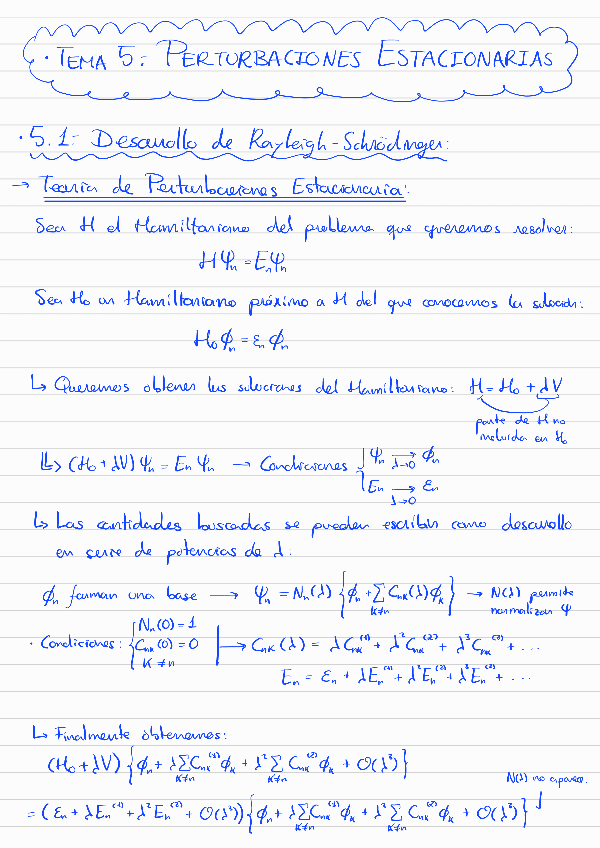 · TEMA 5: PERTURBACIONES ESTACIONARIAS
· 5.1: Desarrollo de Rayleigh-Schrödinger:
→ Teoría de Perturbaciones Estacionaria:
Sea H el Hamiltoniano del problema que queremos resolver:
HΨₙ = EₙΨₙ
Sea H₀ un Hamiltoniano próximo a H del que conocemos la solución:
H₀ϕₙ = εₙϕₙ
↳ Queremos obtener las soluciones del Hamiltoniano: H = H₀ + λV
parte de H no
incluida en H₀
↳ (H₀ + λV)Ψₙ = EₙΨₙ → Condiciones { Ψₙ →(λ→0) ϕₙ
Eₙ →(λ→0) εₙ
↳ Las cantidades buscadas se pueden escribir como desarrollo
en serie de potencias de λ.
ϕₙ forman una base → Ψₙ = Nₙ(λ) {ϕₙ + Σ_{K≠n} C_{nK}(λ)ϕ_K} → N(λ) permite
normalizar Ψ
· Condiciones: { Nₙ(0) = 1
C_{nK}(0) = 0
K ≠ n
→ C_{nK}(λ) = λC_{nK}^{(1)} + λ²C_{nK}^{(2)} + λ³C_{nK}^{(3)} + ...
Eₙ = εₙ + λEₙ^{(1)} + λ²Eₙ^{(2)} + λ³Eₙ^{(3)} + ...
↳ Finalmente obtenemos:
(H₀ + λV) {ϕₙ + λΣ_{K≠n} C_{nK}^{(1)}ϕ_K + λ²Σ_{K≠n} C_{nK}^{(2)}ϕ_K + O(λ³)}
N(λ) no aparece.
= (εₙ + λEₙ^{(1)} + λ²Eₙ^{(2)} + O(λ³)) {ϕₙ + λΣ_{K≠n} C_{nK}^{(1)}ϕ_K + λ²Σ_{K≠n} C_{nK}^{(2)}ϕ_K + O(λ³)}